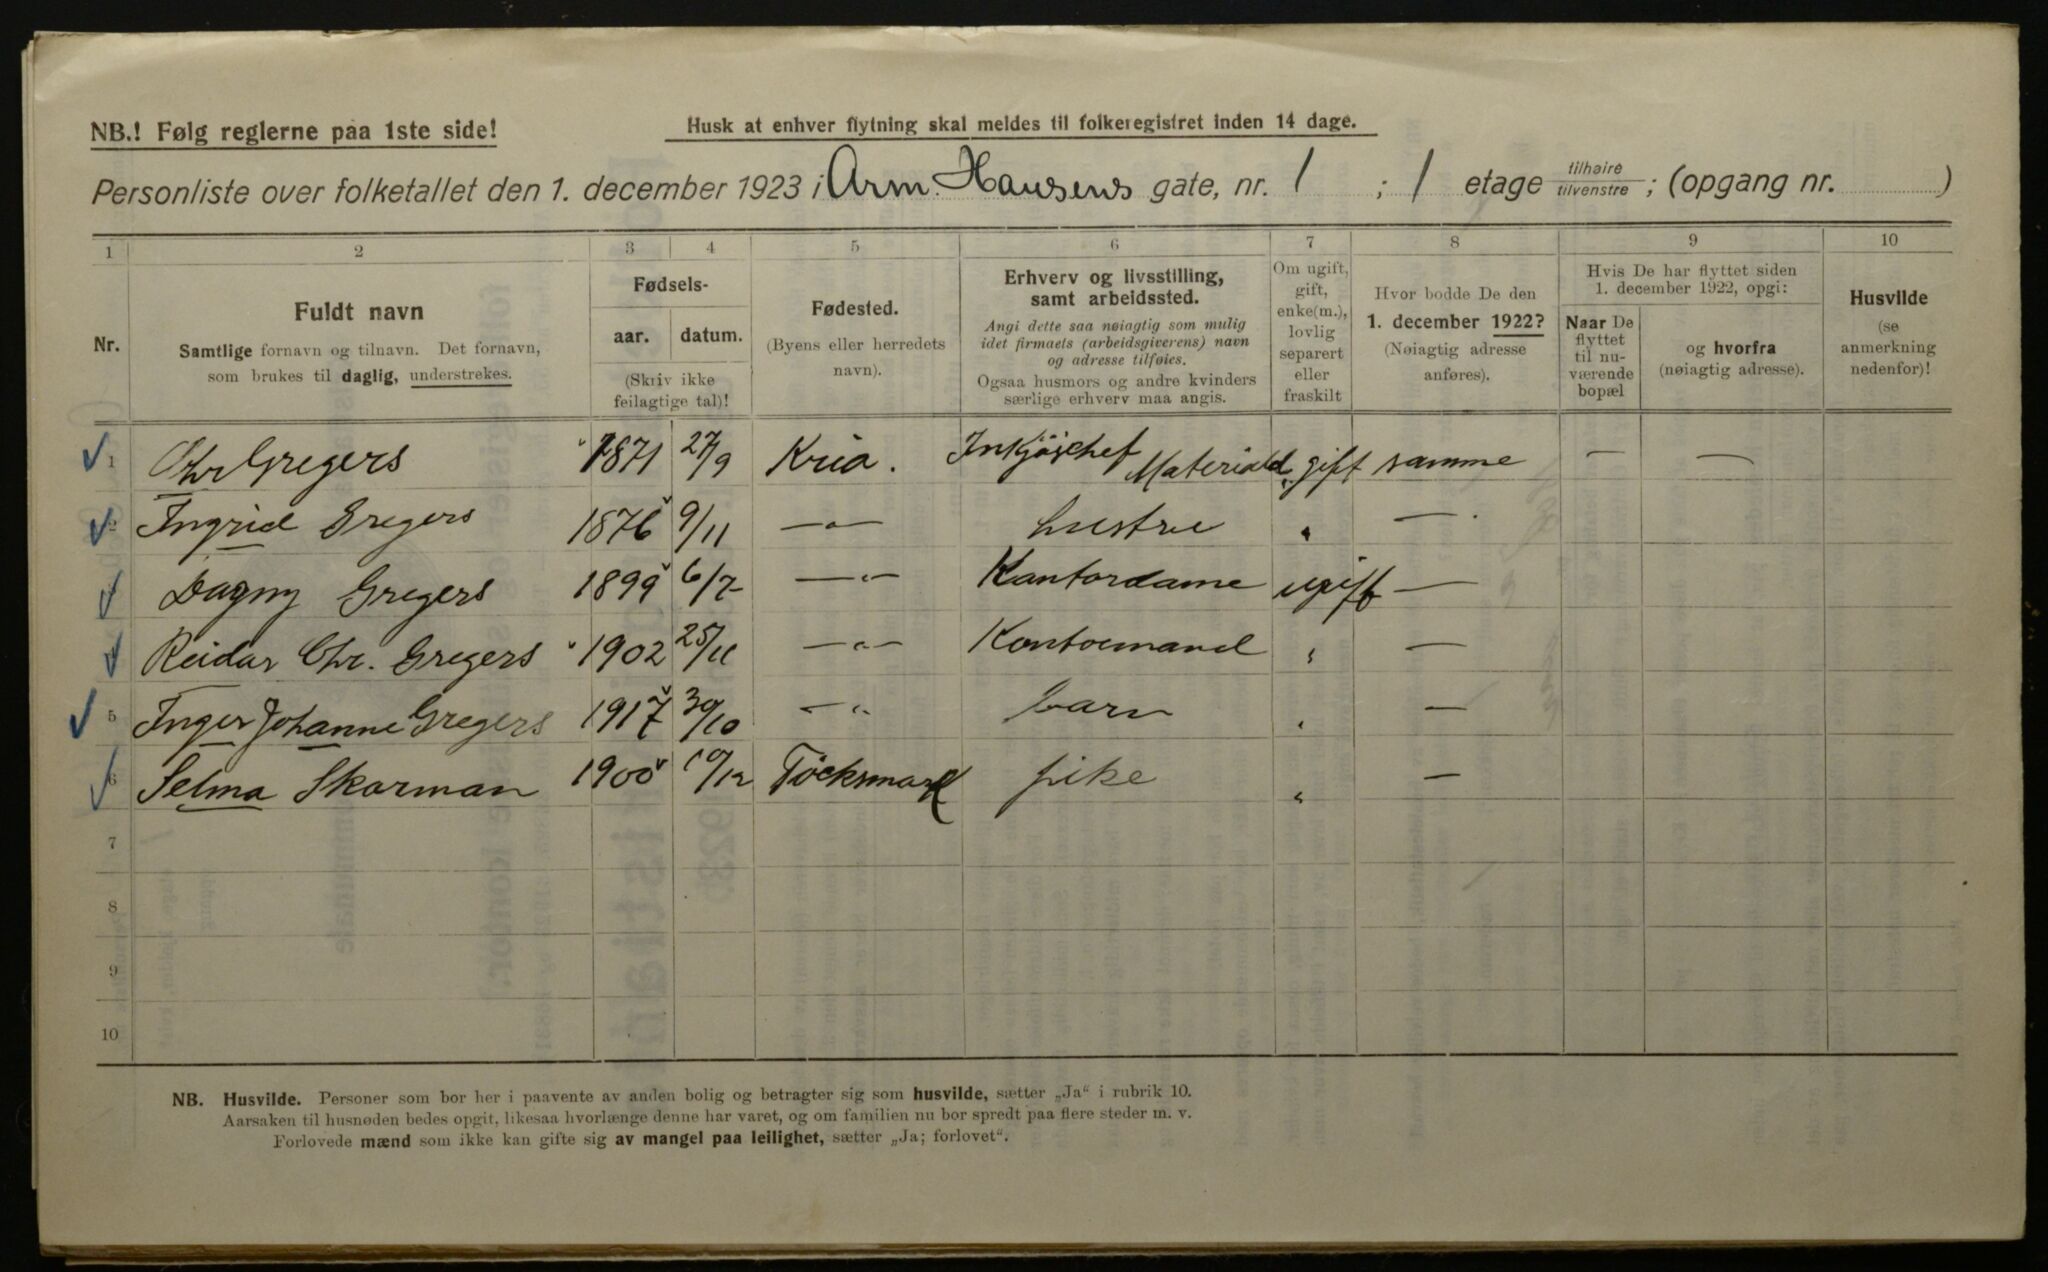 NB.! Følg reglerne paa 1ste side!
Husk at enhver flytning skal meldes til folkeregistret inden 14 dage.
Personliste over folketallet den 1. december 1923 i Arm. Hansens gate, nr. 1 ; 1 etage tilhøire tilvenstre ; (opgang nr. )
1 2 3 4 5 6 7 8 9 10
Nr.
Fuldt navn
Samtlige fornavn og tilnavn. Det fornavn,
som brukes til daglig, understrekes.
Fødsels-
aar. datum.
(Skriv ikke
feilagtige tal)!
Fødested.
(Byens eller herredets
navn).
Erhverv og livsstilling,
samt arbeidssted.
Angi dette saa nøiagtig som mulig
idet firmaets (arbeidsgiverens) navn
og adresse tilføies.
Ogsaa husmors og andre kvinders
særlige erhverv maa angis.
Om ugift,
gift,
enke(m.),
lovlig
separert
eller
fraskilt
Hvor bodde De den
1. december 1922?
(Nøiagtig adresse
anføres).
Hvis De har flyttet siden
1. december 1922, opgi:
Naar De
flyttet
til nu-
værende
bopæl
og hvorfra
(nøiagtig adresse).
Husvilde
(se
anmerkning
nedenfor)!
1 Chr Gregers 1871 27/9 Kria. Inkjøpschef Materiald. gift samme — —
2 Ingrid Gregers 1876 9/11 —"— hustru " —"
3 Dagny Gregers 1899 6/7 —"— Kontordame ugift —
4 Reidar Chr. Gregers 1902 25/11 —"— Kontormand " —
5 Inger Johanne Gregers 1917 30/10 —"— barn " —
6 Selma Skarman 1900 10/12 Töcksmark pike " —
7
8
9
10
NB. Husvilde. Personer som bor her i paavente av anden bolig og betragter sig som husvilde, sætter „Ja“ i rubrik 10.
Aarsaken til husnøden bedes opgit, likesaa hvorlænge denne har varet, og om familien nu bor spredt paa flere steder m. v.
Forlovede mænd som ikke kan gifte sig av mangel paa leilighet, sætter „Ja; forlovet“.